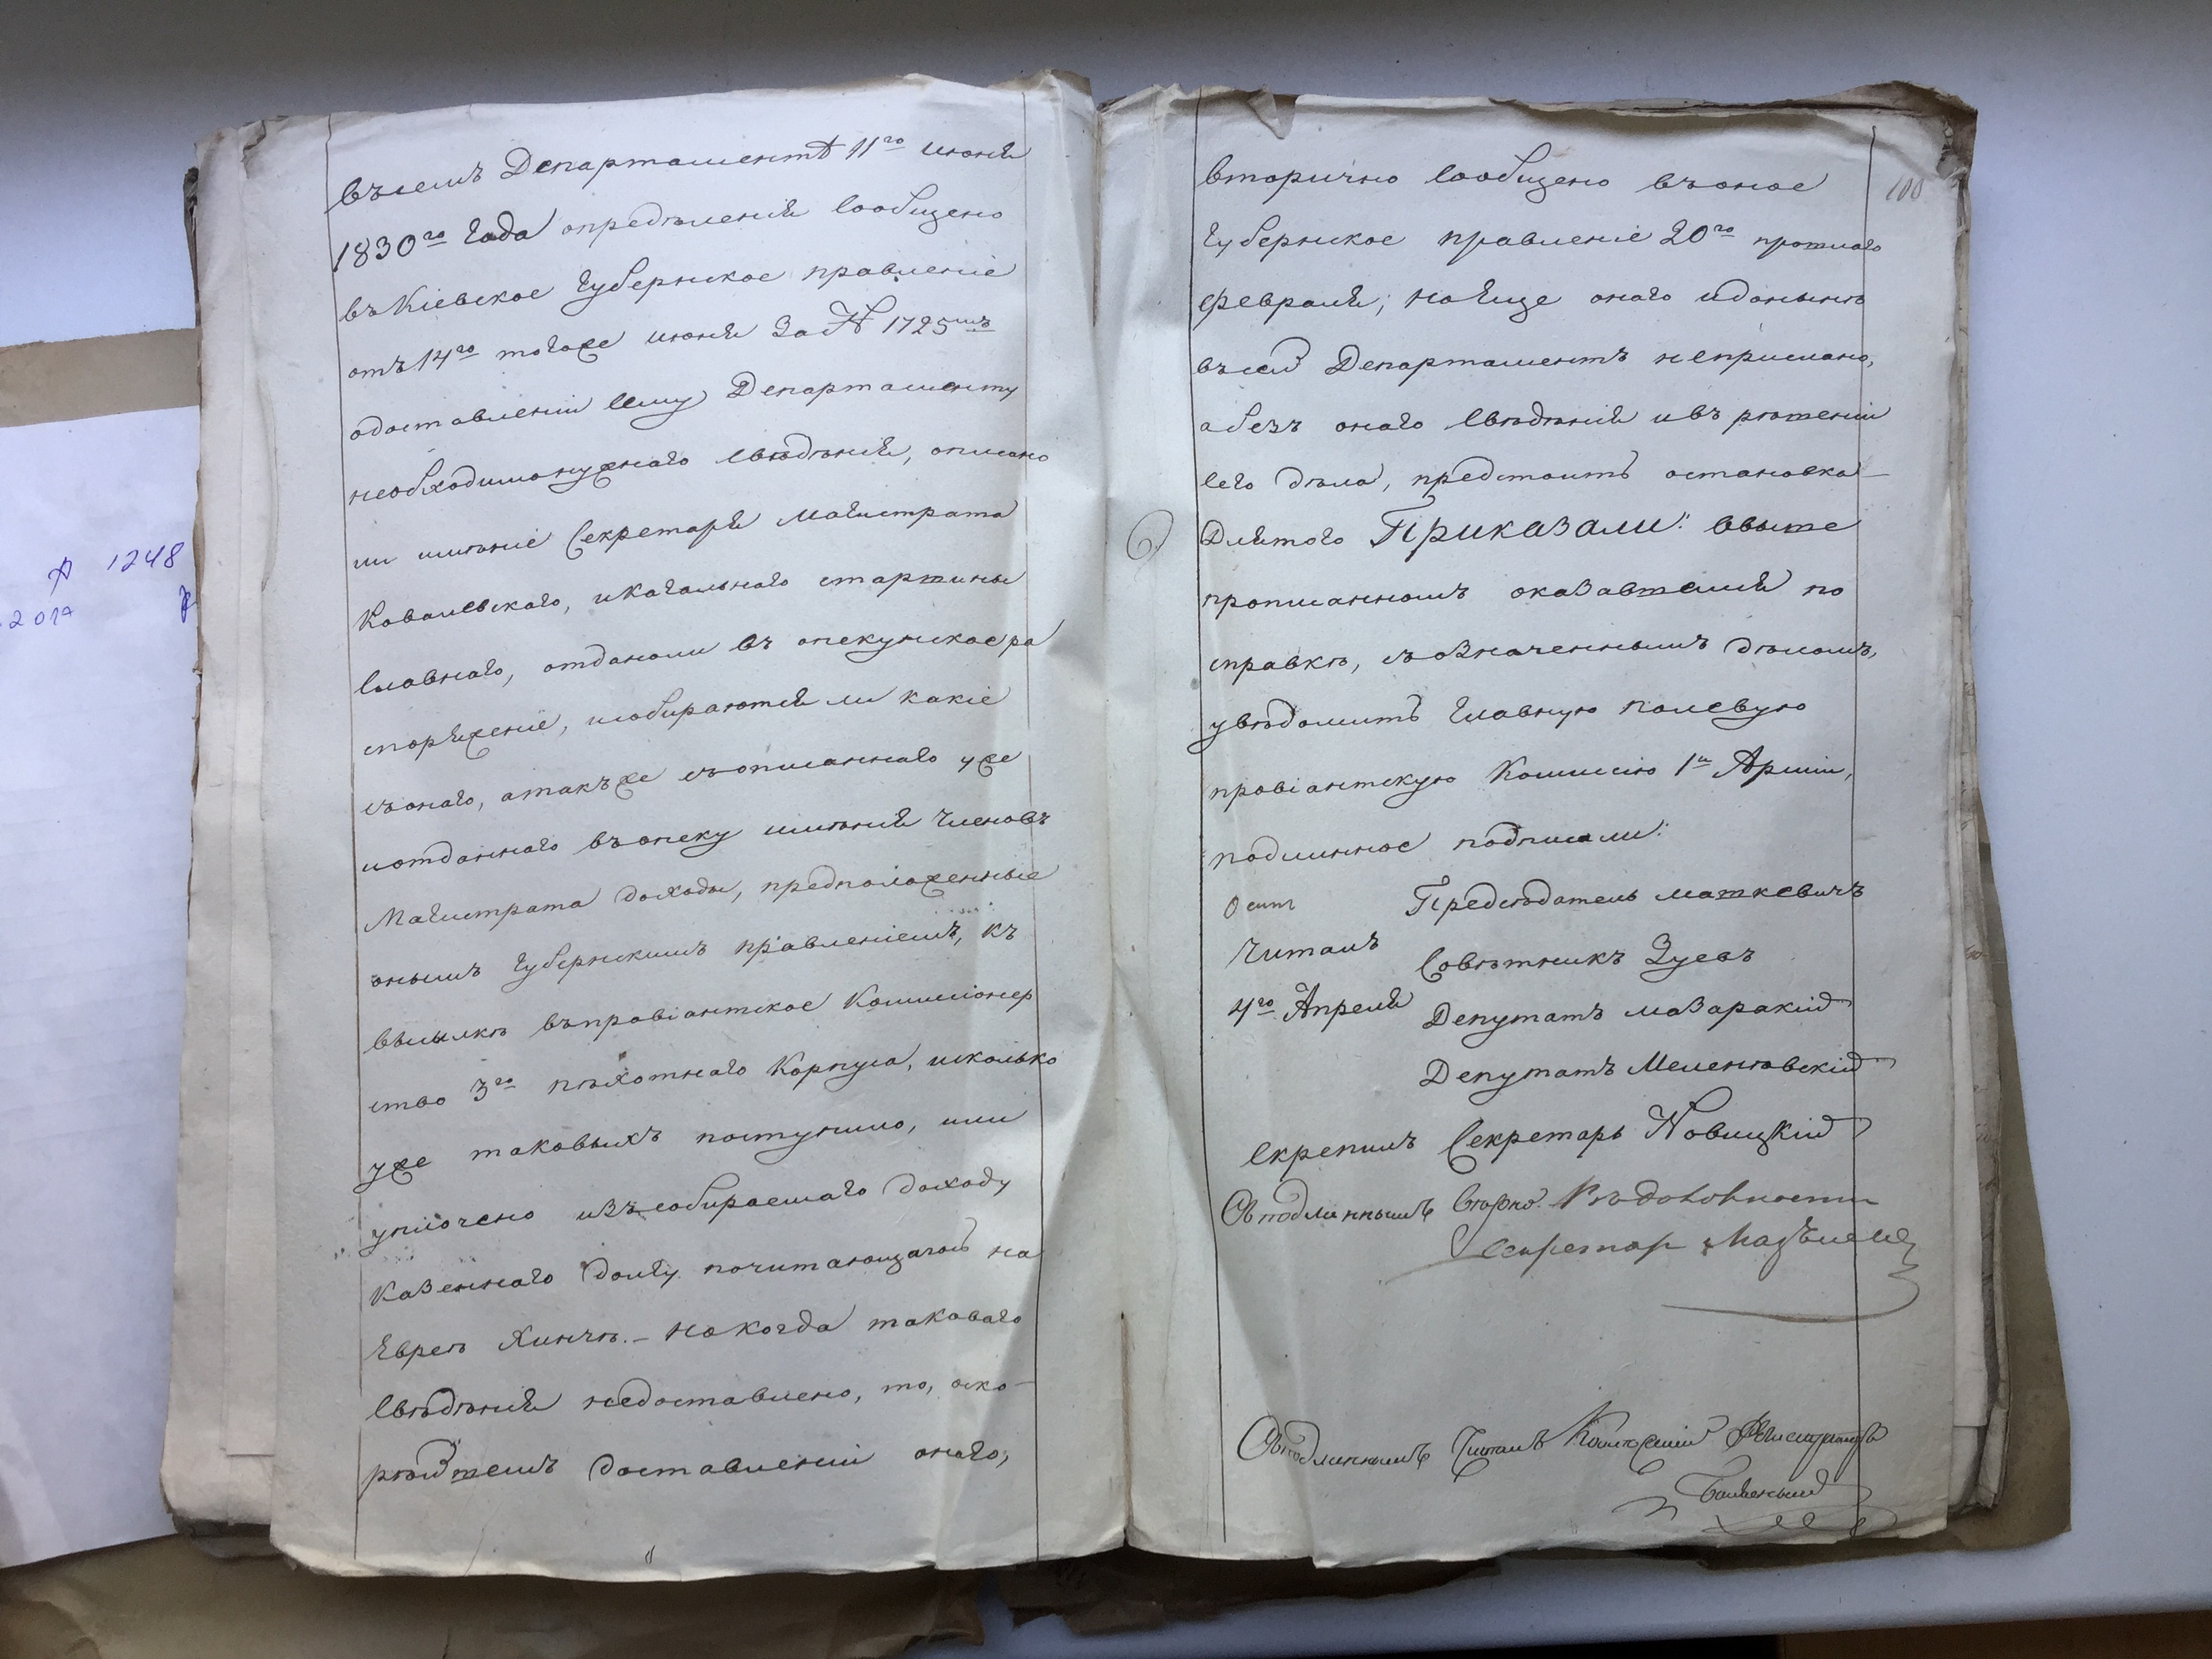 въсемъ Департаментѣ 11го июня
1830го года опредѣленія сообщено
въ Кіевское Губернское правленіе
отъ 14го тогоже июня За N 1725мъ
одоставленіи сему Департаменту
необходимонужнаго свѣдѣнія, описано
ли имѣніе Секретаря Магистрата
Ковалевскаго, икагальнаго старшины
Славнаго, отданоли въ опекунское ра
споряженіе, исобираются ли какіе
съонаго, атакъже съописаннаго уже
иотданнаго въопеку имѣнія Членовъ
Магистрата доходы, предположенные
онымъ Губернскимъ правленіемъ, къ
высылкѣ въпровіантское Коммисіонер
ство 3го пѣхотнаго Корпуса, исколько
уже таковыхъ поступило, или
уплочено изъсобираемаго доходу
Казеннаго долгу почитающагося на
Евреѣ Хинчѣ. – Нокогда таковаго
свѣдѣнія недоставлено, то, оско–
рѣйшемъ доставленіи онаго,
вторично сообщено въоное
Губернское правленіе 20го прошлаго
февраля; ноеще онаго идонынѣ
въсей Департаментъ неприслано,
абезъ онаго свѣдѣнія ивъ рѣшеніи
сего дѣла, предстоитъ остановка –
Длятого Приказали: овыше
прописанномъ оказавшемся по
справкѣ, съозначеннымъ дѣломъ,
увѣдомить Главную полевую
провіантскую Коммисію 1й Арміи,
подлинное подписали:
100
Предсѣдатель Маткевичъ
Читалъ
Совѣтникъ Зуевъ
4го Апреля
Депутатъ Мазаракій
Депутатъ Меленѣвскій
Скрепилъ Секретарь Новицкій
Съподлиннымъ
Секретарь
Съподлиннымъ Читалъ Коллежскій Регистраторъ
А 1248